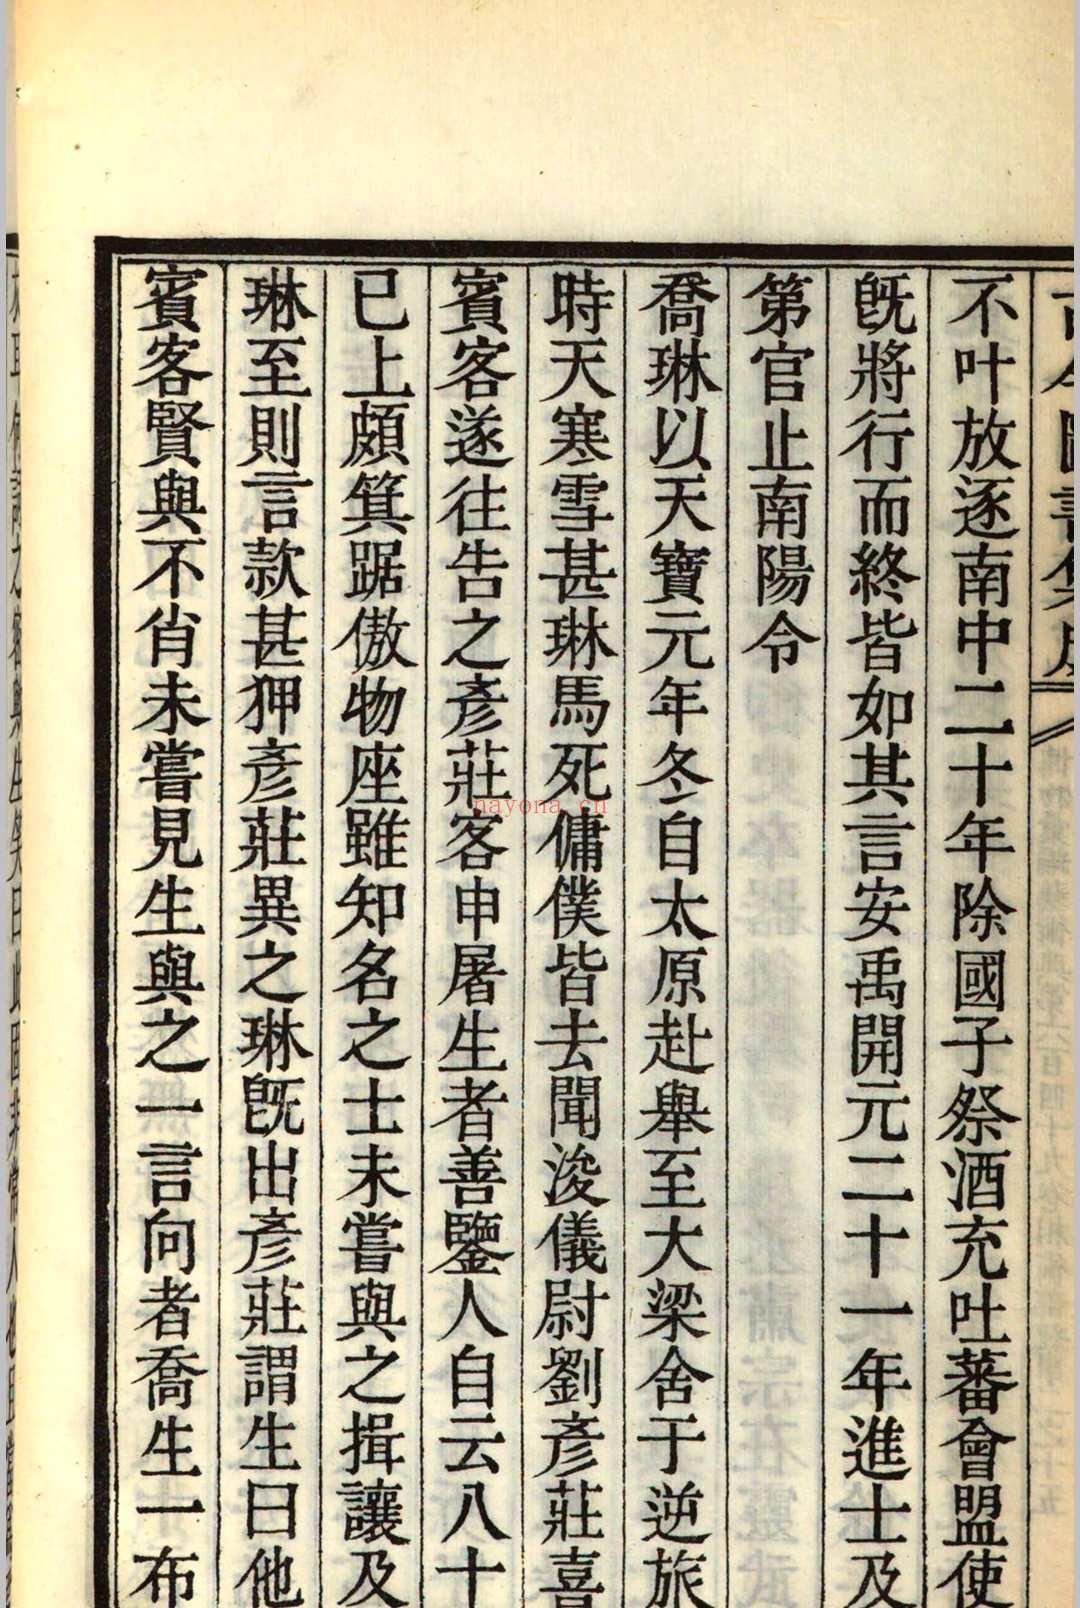 不叶放逐南中二十年除國子祭酒充吐蕃會盟使
旣將行而終皆如其言安禹開元二十一年進士及
第官止南陽令
喬琳以天寶元年冬自太原赴舉至大梁舍于逆旅
時天寒雪甚琳馬死傭僕皆去聞浚儀尉劉彥莊喜
賓客遂往告之彥莊客申屠生者善鑒人自云八十
已上頗箕踞傲物座雖知名之士未嘗與之揖讓及
琳至則言款甚狎彥莊異之琳旣出彥莊謂生曰他
賓客賢與不肖未嘗見生與之一言向者喬生一布
nayona.cn